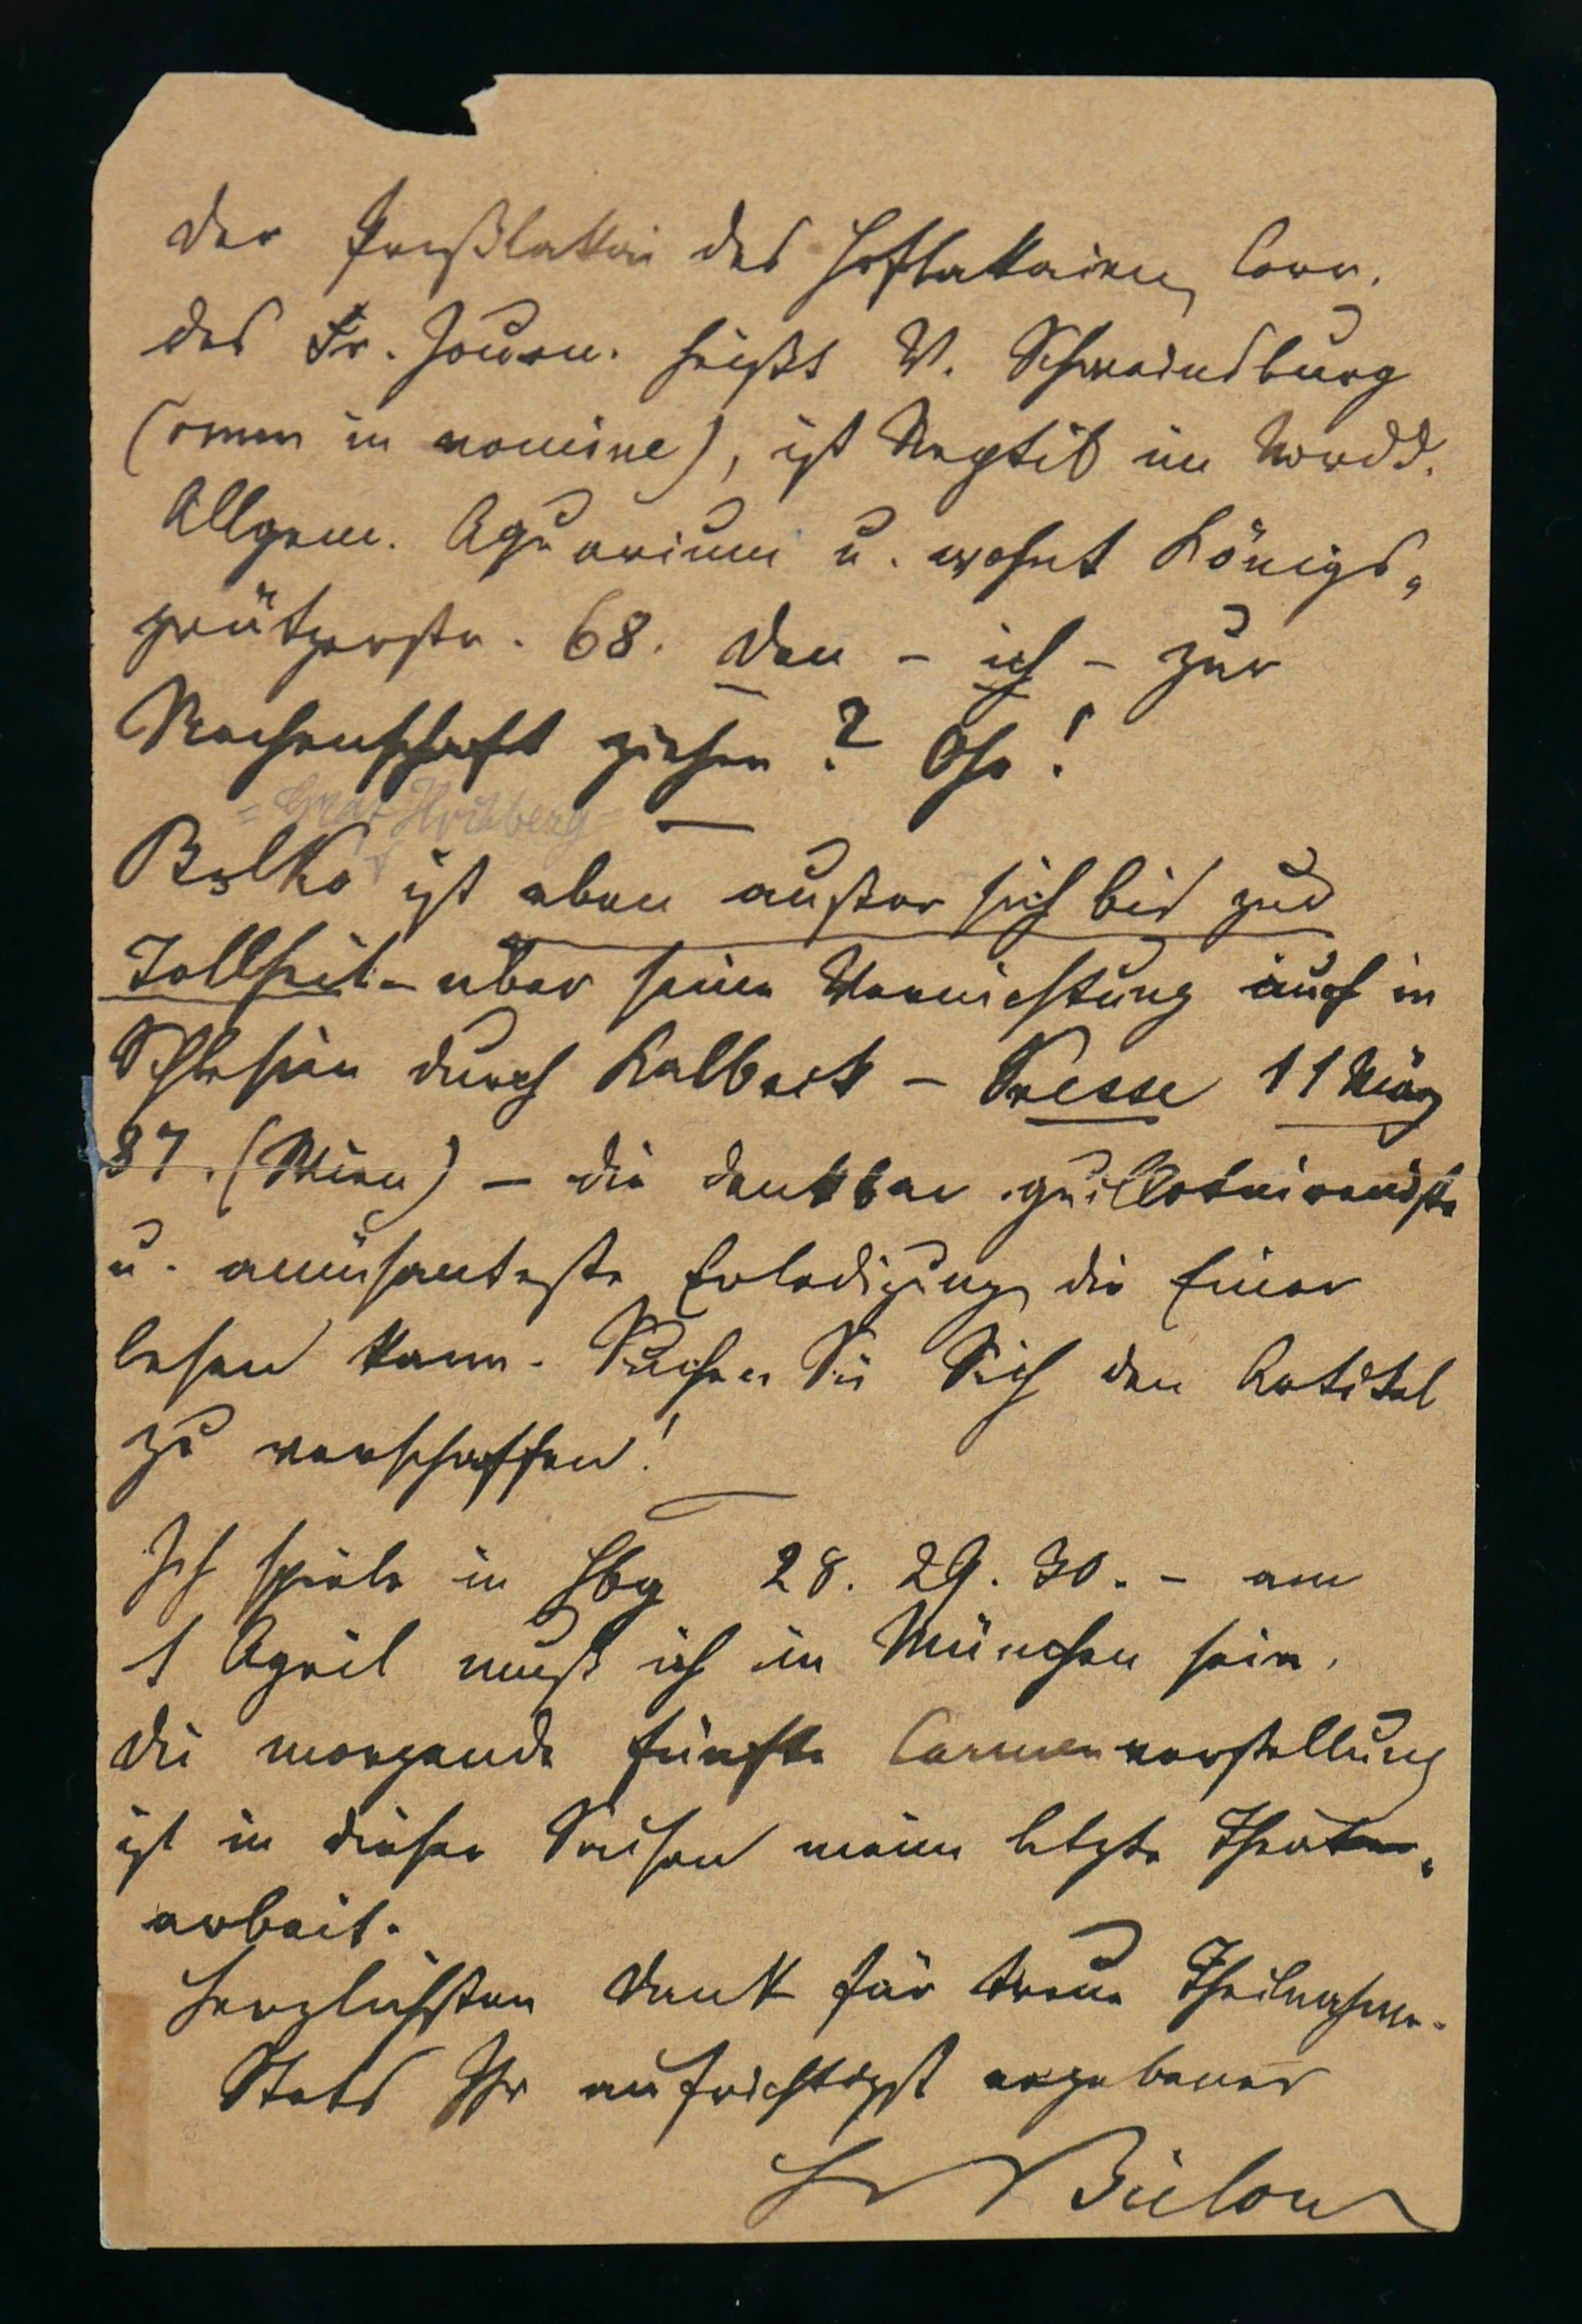 Der Preßlakai des Hoflakaien, Corr.
des Fr. Journ. heißt V. Schweinsburg
(omen in nomine), ist Reptil im Nordd.
Allgem. Aquarium u. wohnt Königs„
grätzerstr. 68. Den – ich – zur
Rechenschaft ziehen? Oho!
= Graf Hochberg =
Bolko ist eben außer sich bis zur
Tollheit – über seine Vernichtung auch in
Schlesien durch Kalbeck – Presse 11 März
87. (Wien) – die denkbar guillotinirendste
u. amüsanteste Erledigung, die Einer
lesen kann. Suchen Sie Sich den Artikel
zu verschaffen!
Ich spiele in Hbg 28. 29. 30. – am
1 April muß ich in München sein.
Die morgende fünfte Carmenvorstellung
ist in dieser Saison meine letzte Theater„
arbeit.
Herzlichsten Dank für treue Theilnahme.
Stets Ihr aufrichtigst ergebener
H v Bülow